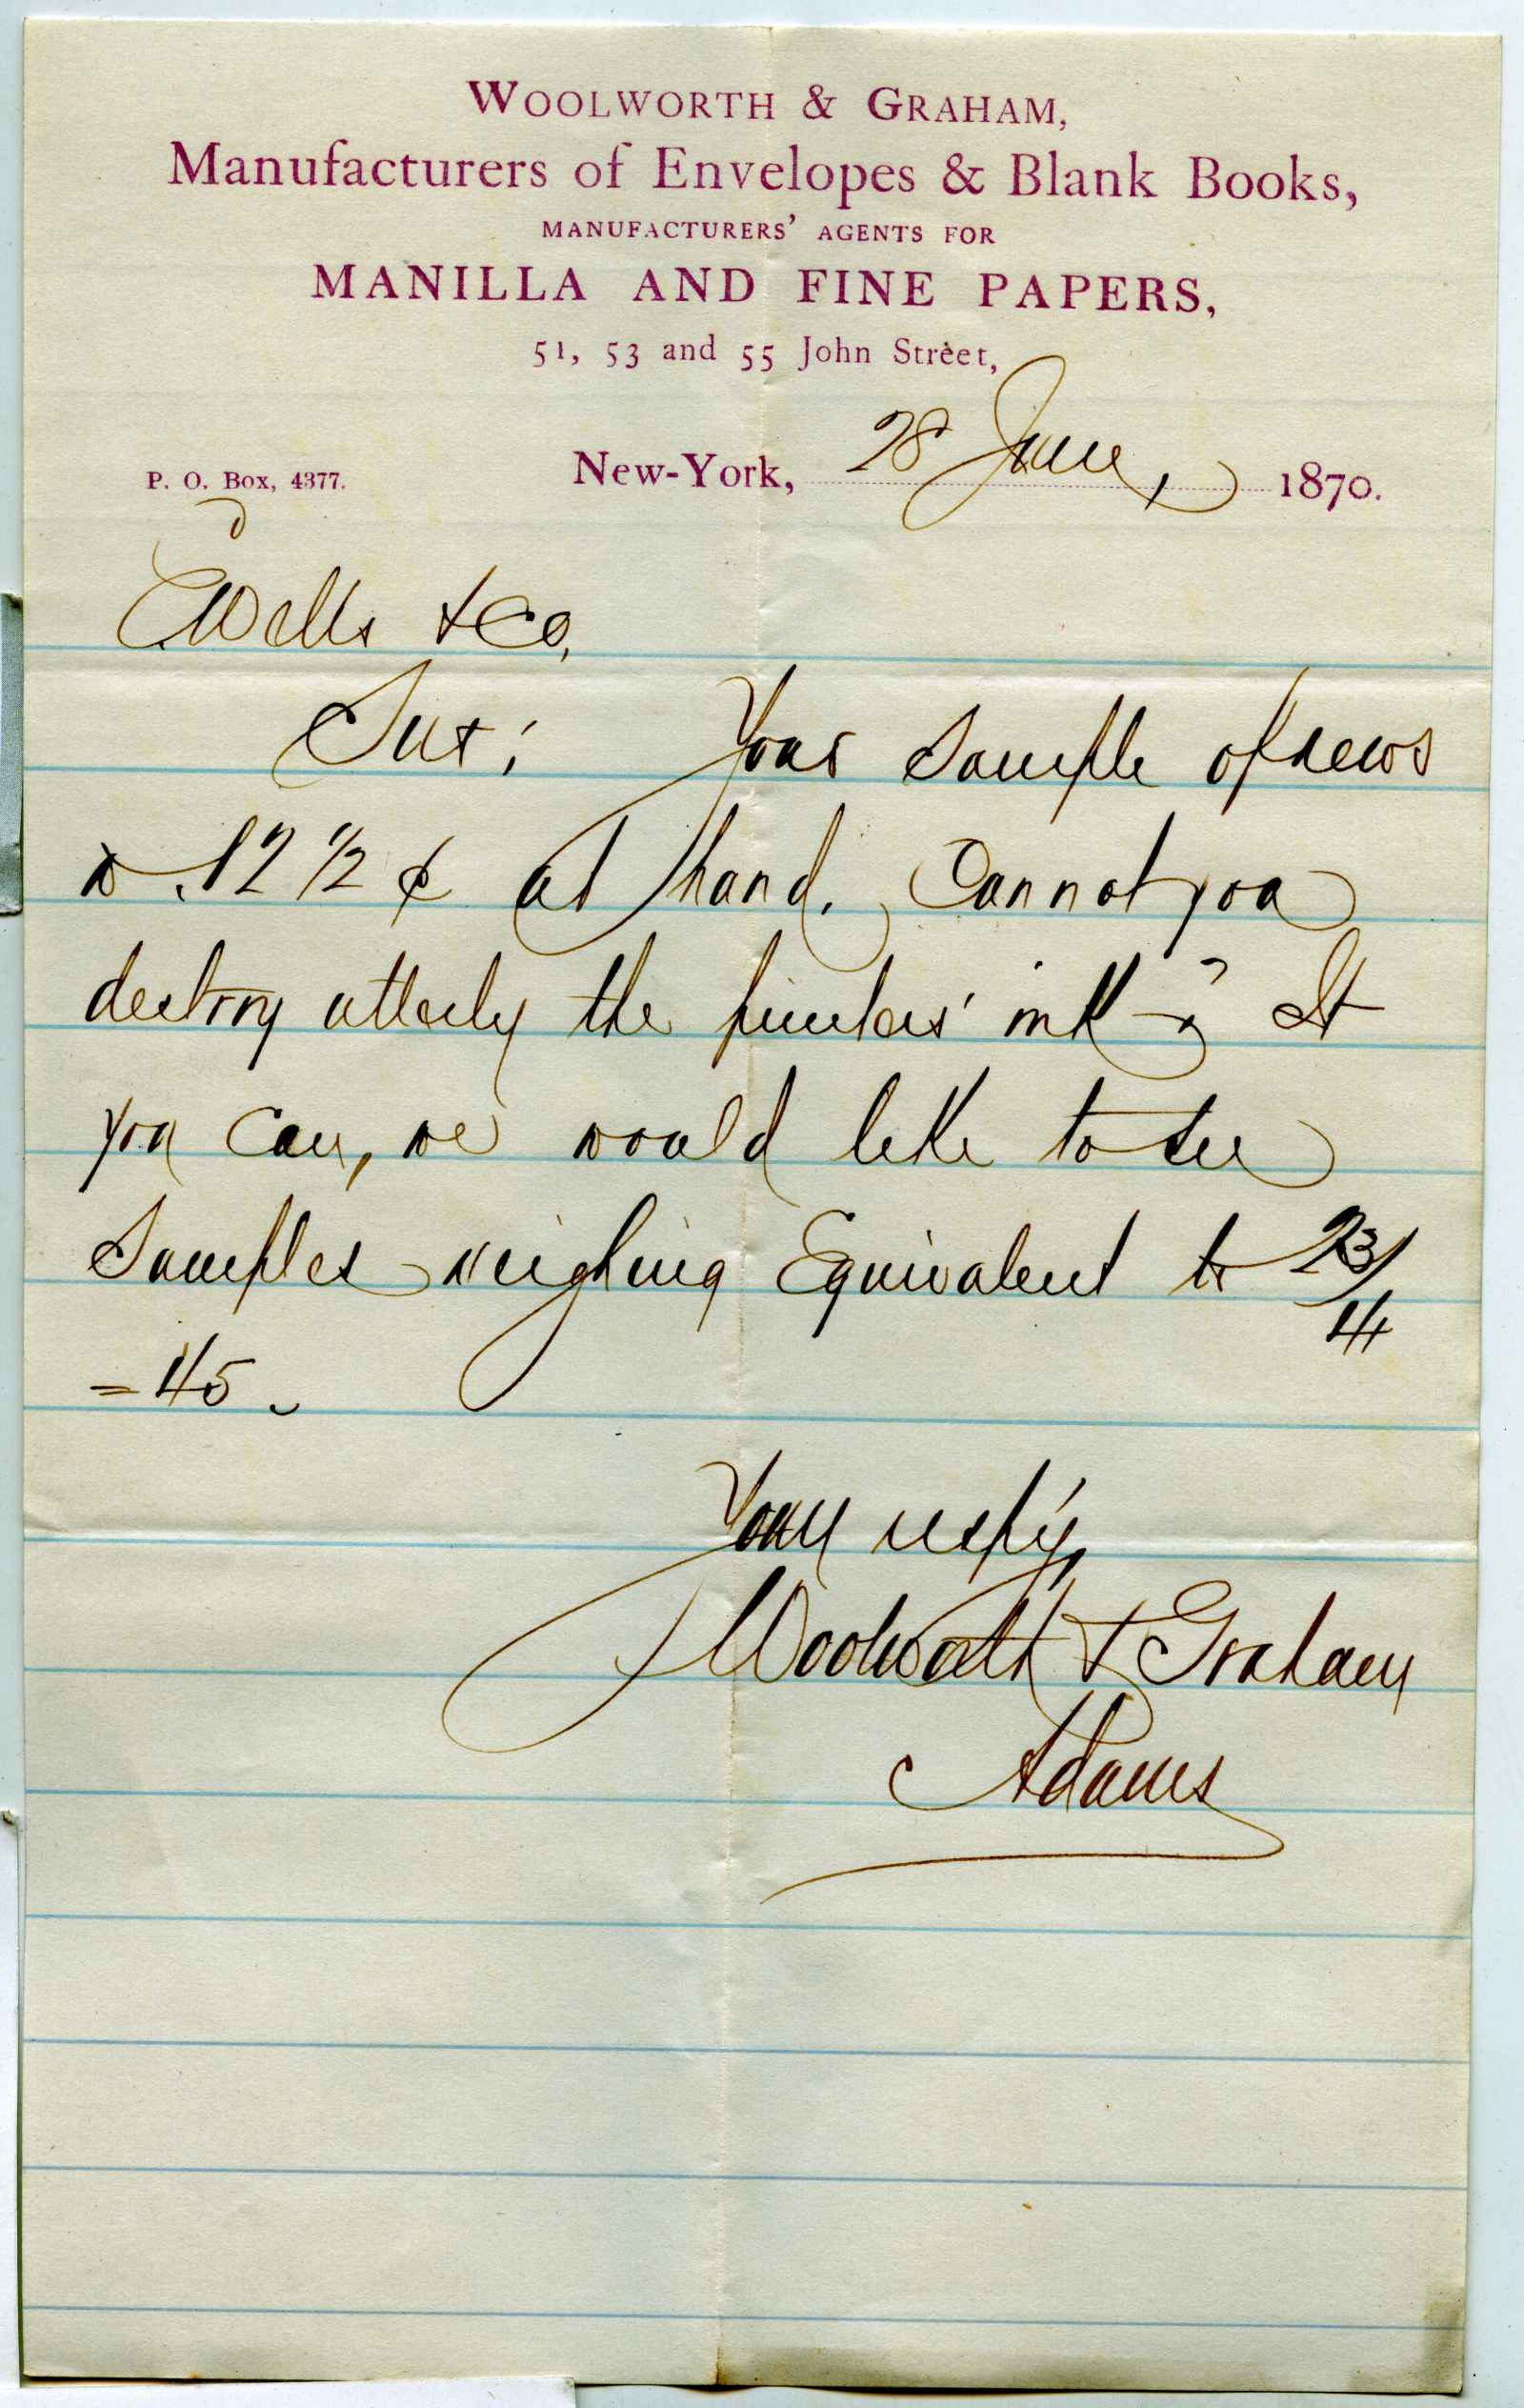 WOOLWORTH & GRAHAM,
Manufacturers of Envelopes & Blank Books,
MANUFACTURERS' AGENTS FOR
MANILLA AND FINE PAPERS,
51, 53 and 55 John Street,
P. O. Box, 4377. New-York, 28 June, 1870.
Wells & Co,
Your sample of news
12 ½ ¢ at hand. Cannot you
destroy utterly the printers' ink? If
you can, we would like to see
samples weighing Equivalent to 23/
= 45.
Yours resp'y,
Woolworth & Graham
Adams